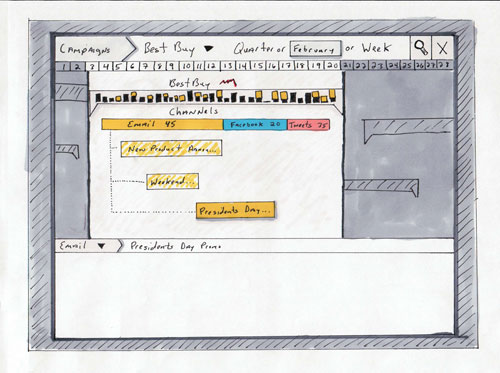 CAMPAIGNS Best Buy ▼ Quarter or February or Week X
1 2 3 4 5 6 7 8 9 10 11 12 13 14 15 16 17 18 19 20 21 22 23 24 25 26 27 28
Best Buy
CHANNELS
Email 45 Facebook 20 Tweets 25
New Product Annou...
Weekend...
Presidents Day...
Email ▼ Presidents Day Promo